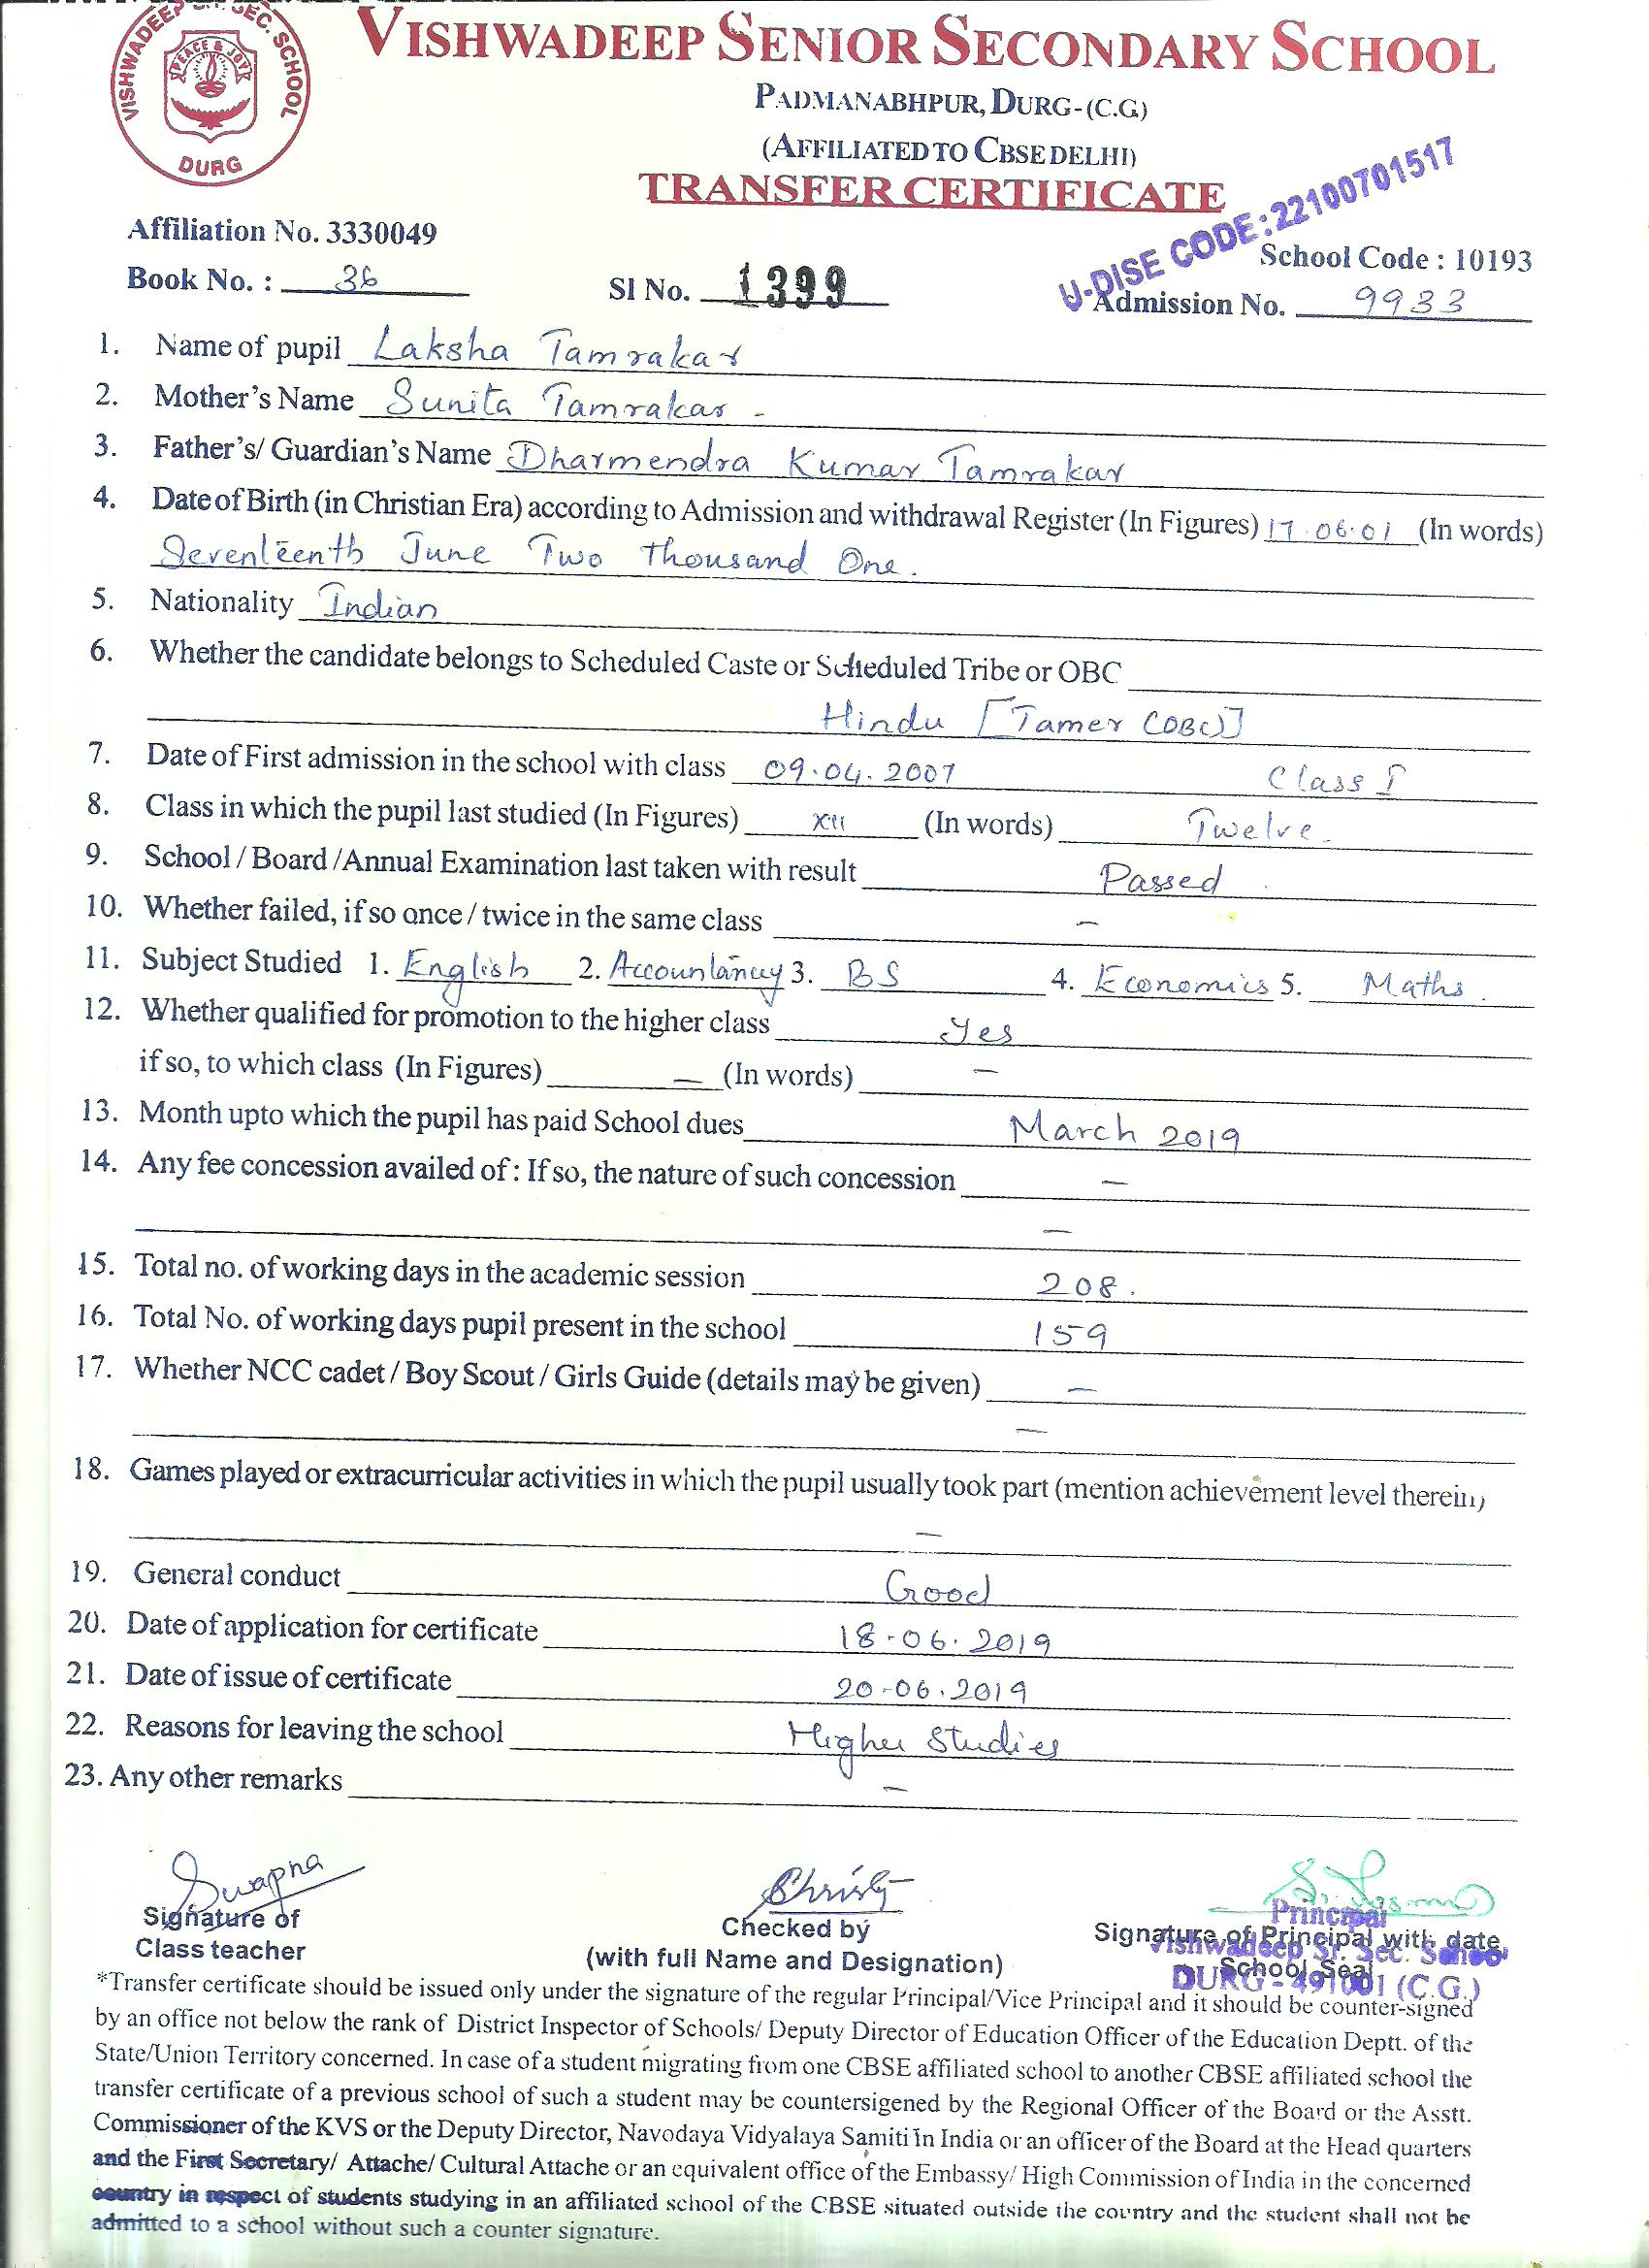 VISHWADEEP SR. SEC. SCHOOL
PEACE & JOY
DURG
VISHWADEEP SENIOR SECONDARY SCHOOL
PADMANABHPUR, DURG-(C.G)
(AFFILIATED TO CBSE DELHI)
TRANSFER CERTIFICATE
U-DISE CODE:22100701517
Affiliation No. 3330049
School Code : 10193
Book No. : 36 Sl No. 1399 Admission No. 9933
1. Name of pupil Laksha Tamrakar
2. Mother's Name Sunita Tamrakar -
3. Father's/ Guardian's Name Dharmendra Kumar Tamrakar
4. Date of Birth (in Christian Era) according to Admission and withdrawal Register (In Figures) 17.06.01 (In words)
Seventeenth June Two Thousand One.
5. Nationality Indian
6. Whether the candidate belongs to Scheduled Caste or Scheduled Tribe or OBC
Hindu [Tamer (OBC)]
7. Date of First admission in the school with class 09.04.2007 Class I
8. Class in which the pupil last studied (In Figures) XII (In words) Twelve.
9. School / Board /Annual Examination last taken with result Passed
10. Whether failed, if so once / twice in the same class –
11. Subject Studied 1. English 2. Accountancy 3. BS 4. Economics 5. Maths.
12. Whether qualified for promotion to the higher class Yes
if so, to which class (In Figures) – (In words) –
13. Month upto which the pupil has paid School dues March 2019
14. Any fee concession availed of : If so, the nature of such concession –
–
15. Total no. of working days in the academic session 208.
16. Total No. of working days pupil present in the school 159
17. Whether NCC cadet / Boy Scout / Girls Guide (details may be given) –
–
18. Games played or extracurricular activities in which the pupil usually took part (mention achievement level therein)
–
19. General conduct Good
20. Date of application for certificate 18-06.2019
21. Date of issue of certificate 20-06.2019
22. Reasons for leaving the school Higher Studies
23. Any other remarks –
Swapna Christy
Signature of Class teacher
Checked by
(with full Name and Designation)
Signature of Principal with date
School Seal
Principal
Vishwadeep Sr. Sec. School
DURG - 491001 (C.G.)
*Transfer certificate should be issued only under the signature of the regular Principal/Vice Principal and it should be counter-signed
by an office not below the rank of District Inspector of Schools/ Deputy Director of Education Officer of the Education Deptt. of the
State/Union Territory concerned. In case of a student migrating from one CBSE affiliated school to another CBSE affiliated school the
transfer certificate of a previous school of such a student may be countersigned by the Regional Officer of the Board or the Asstt.
Commissioner of the KVS or the Deputy Director, Navodaya Vidyalaya Samiti In India or an officer of the Board at the Head quarters
and the First Secretary/ Attache/ Cultural Attache or an equivalent office of the Embassy/ High Commission of India in the concerned
country in respect of students studying in an affiliated school of the CBSE situated outside the country and the student shall not be
admitted to a school without such a counter signature.